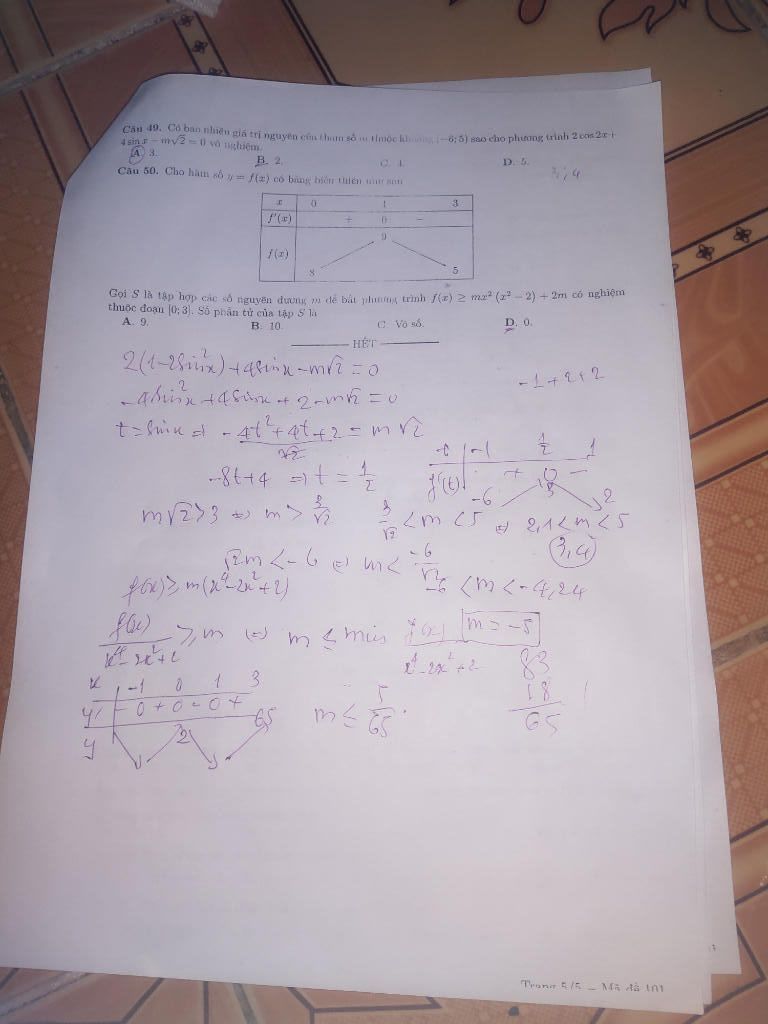 Câu 49. Có bao nhiêu giá trị nguyên của tham số m thuộc khoảng (−6; 5) sao cho phương trình 2 cos 2x +
4 sin x − m√2 = 0 vô nghiệm.
A. 3. B. 2. C. 4. D. 5.
3; 4
Câu 50. Cho hàm số y = f(x) có bảng biến thiên như sau
x 0 1 3
f′(x) + 0 −
f(x) 8 9 5
Gọi S là tập hợp các số nguyên dương m để bất phương trình f(x) ≥ mx² (x² − 2) + 2m có nghiệm
thuộc đoạn [0; 3]. Số phần tử của tập S là
A. 9. B. 10. C. Vô số. D. 0.
HẾT
2(1-2sin²x)+4sinx-m√2=0
-4sin²x+4sinx+2-m√2=0
-1+2+2
t=sinx ⇒ -4t²+4t+2 = m√2
√2
-8t+4 ⇒ t = 1/2
t -1 1/2 1
f'(t) + 0 -
-6 3 2
m√2>3 ⇔ m > 3/√2
3/√2 < m < 5 ⇔ 2,1<m<5
3,4
√2m < -6 ⇔ m < -6/√2
-6 < m < -4,24
f(x) ≥ m(x⁴-2x²+2)
f(x)/x⁴-2x²+2 ≥ m ⇔ m ≤ min f(x)/x⁴-2x²+2
m = -5
x -1 0 1 3
y' - 0 + 0 - 0 +
y 1 2 1 65
m ≤ 5/65.
83
18
65
Trang 5/5 − Mã đề 101